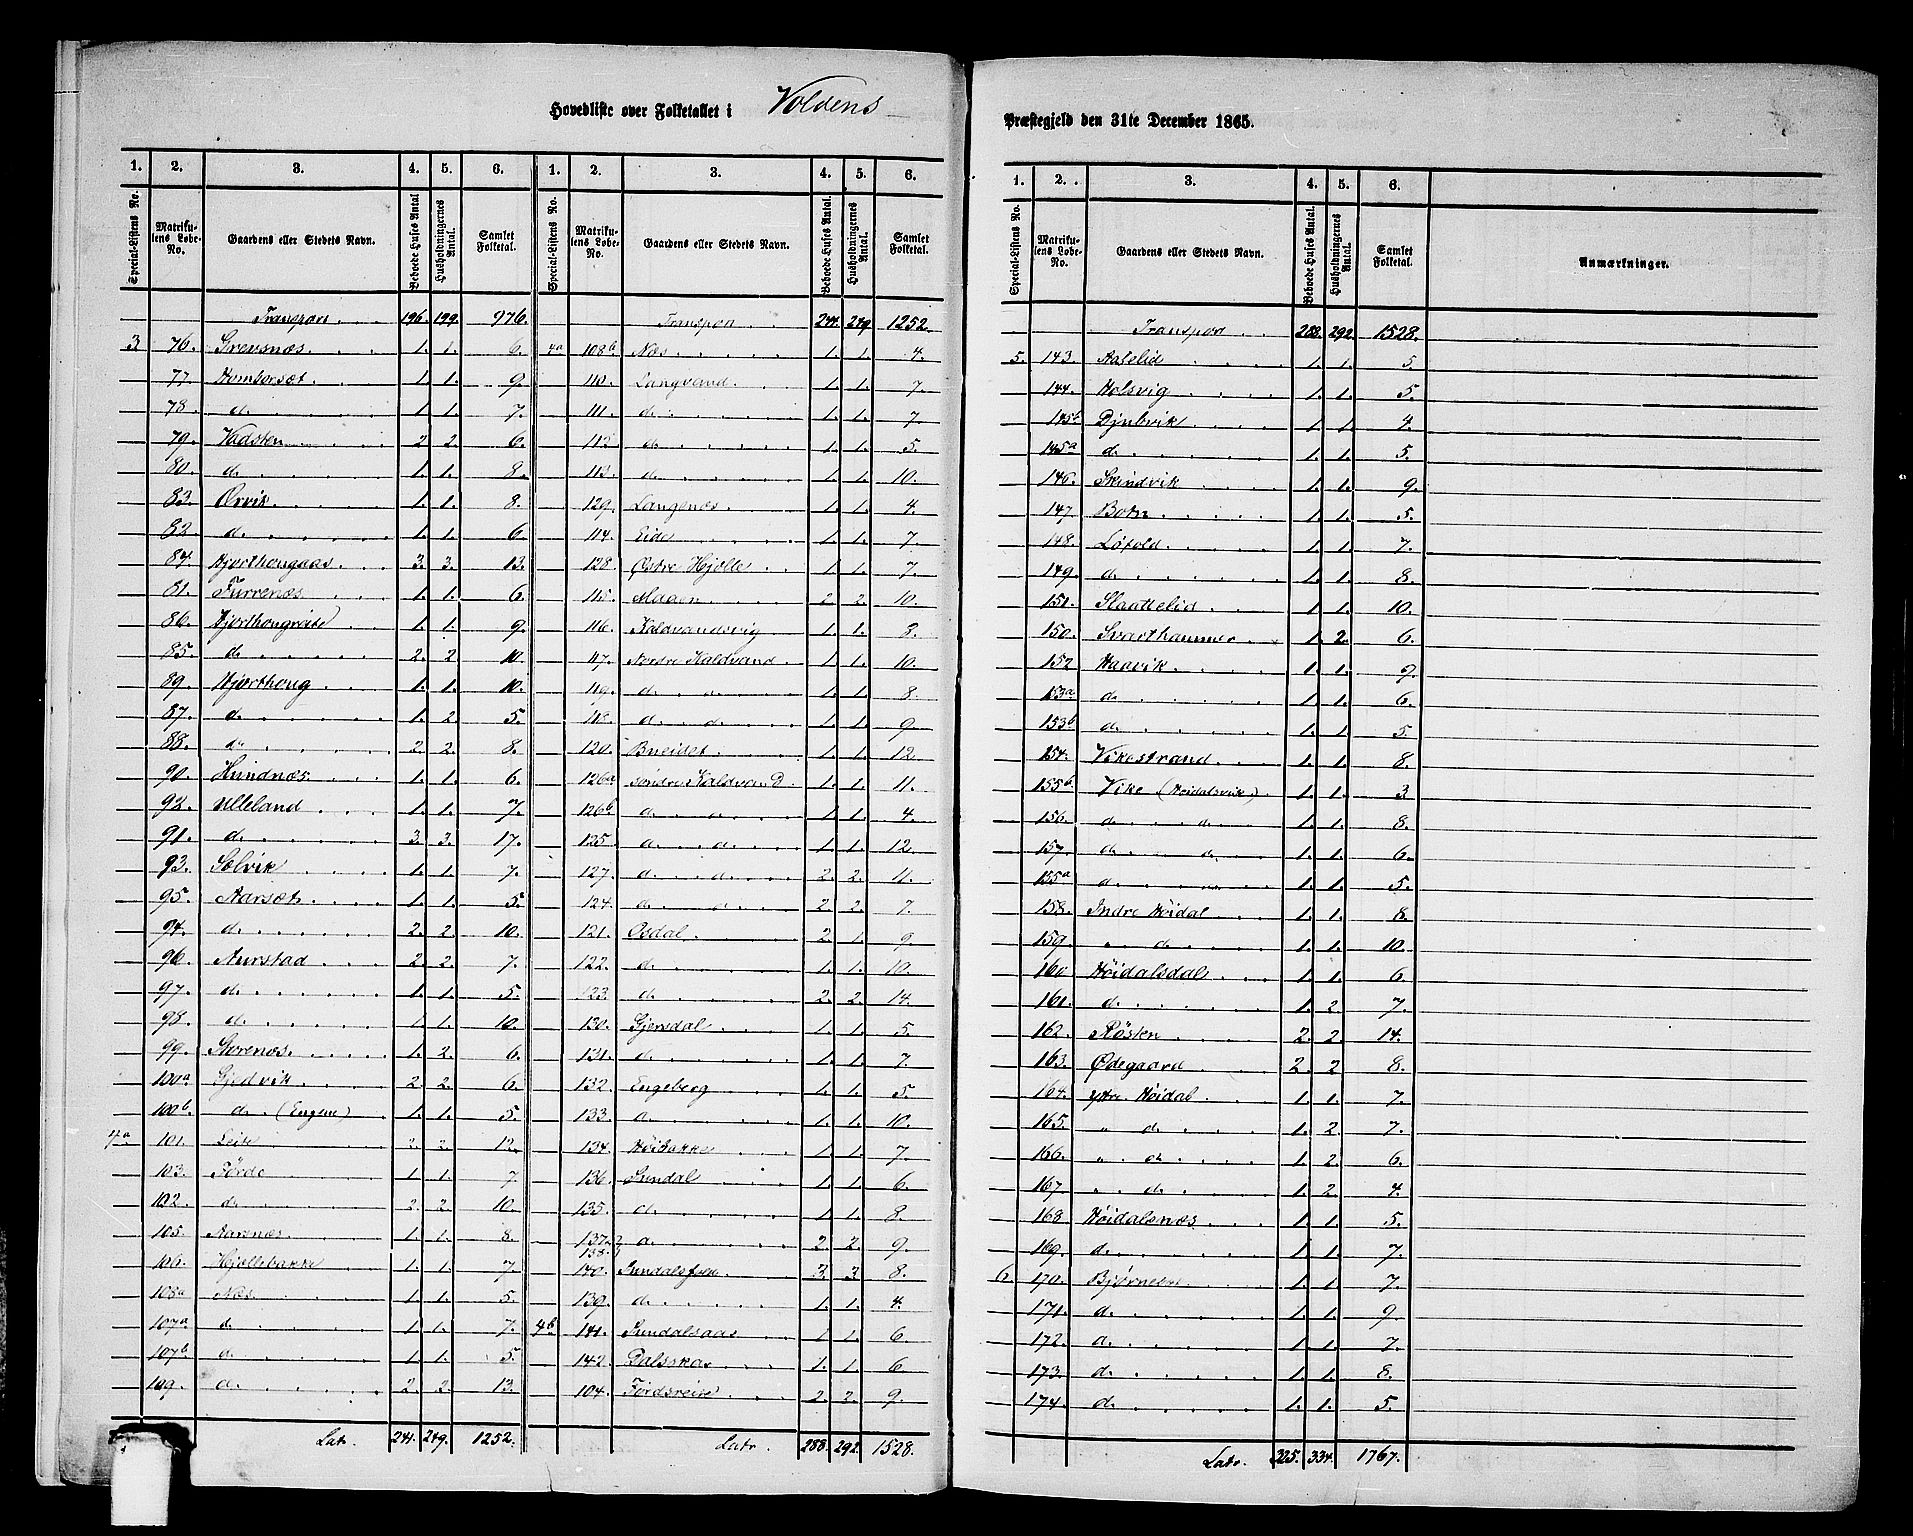 Hovedliste over Folketallet i Voldens
Præstegjeld den 31te December 1865.
1. 2. 3. 4. 5. 6. 1. 2. 3. 4. 5. 6.
Special-Listens No. Matrikulens Løbe-No. Gaardens eller Stedets Navn. Beboede Huses Antal Husholdningernes Antal. Samlet Folketal. Special-Listens No. Matrikulens Løbe-No. Gaardens eller Stedets Navn. Beboede Huses Antal. Husholdningernes Antal. Samlet Folketal.
Transport 196. 199. 976.
3 76. Grevsnæs. 1. 1. 6.
77. Homborsæt. 1. 1. 9.
78. d. 1. 1. 7.
79. Vadsten 2. 2. 6.
80. d. 1. 1. 8.
83. Ørvik 1. 1. 8.
82. d. 1. 1. 6.
84. Hjorthougaas 3. 3. 13.
81. Furrenæs 1. 1. 6.
86. Hjorthougreite 1. 1. 9.
85. d. 2. 2. 10.
89. Hjorthoug 1. 1. 10.
87. d. 1. 2. 5.
88. d. 2. 2. 8.
90. Hundnæs. 1. 1. 6.
92. Ulleland 1. 1. 7.
91. d. 3. 3. 17.
93. Sølvik 1. 1. 7.
95. Aarsæt. 1. 1. 5.
94. d. 2. 2. 10.
96. Aurstad 2. 2. 7.
97. d. 1. 1. 5.
98. d. 1. 1. 10.
99. Storenæs. 1. 2. 6.
100a Gjedvik 2. 2. 6.
100b d. (Engene) 1. 1. 5.
4a 101. Leite 2. 2. 12.
103. Førde 1. 1. 7.
102. d. 2. 2. 10.
105. Aarenæs. 1. 1. 8.
106. Hjellebakke 1. 1. 7.
108a Næs. 1. 1. 5.
107a d. 1. 1. 7.
107b d. 1. 1. 5.
109. d. 2. 3. 13.
Lat. 241. 249. 1252.
Transport 241. 249. 1252.
4a 108b Næs 1. 1. 4.
110. Langvand. 1. 1. 7.
111. d. 1. 1. 7
112. d. 1. 1. 5.
113. d. 1. 1. 10.
129. Langenæs. 1. 1. 4.
114. Eide 1. 1. 7.
128. Østre Hjelle 1. 1. 7.
115. Mogen 2. 2. 10.
116. Kaldvandsvig 1. 1. 8.
117. Nordre Kaldvand 1. 1. 10.
119. d. d. 1. 1. 8.
118. d. d. 1. 1. 9.
120. Bneidet 1. 1. 12.
126a Søndre Kaldvand 1. 1. 11.
126b d. d. 1. 1. 4.
125. d. d. 1. 1. 12.
127. d. d. 2. 2. 11.
124. d. d. 2. 2. 7.
121. Osdal. 2. 1. 9.
122. d. 1. 1. 10.
123. d. 2. 2. 14.
130. Gjersdal 1. 1. 5.
131. d. 1. 1. 7.
132. Engeberg 1. 1. 5.
133. d. 1. 1. 10.
134. Høibakke 1. 1. 7.
136. Sundal 1. 1. 6.
135. d. 1. 1. 8.
137. 138. d. 2. 2. 9.
140. 3. 3. 8.
139. d. 1. 1. 4.
4b 141. Sundalsaas 1. 1. 6.
142. Dalsskar 1. 1. 6
104. Førdsreite 2. 2. 9.
Latr. 288. 292. 1528.
1. 2. 3. 4. 5. 6.
Special-Listens No. Matrikulens Løbe-No. Gaardens eller Stedets Navn. Beboede Huses Antal. Husholdningernes Antal. Samlet Folketal. Anmærkninger.
Transport 288. 292. 1528.
5. 143. Aaselid 1. 1. 5.
144. Holsvig 1. 1. 5.
145b Djubvik 1. 1. 4.
145a d. 1. 1. 5.
146. Skindvik 1. 1. 9.
147. Botn 1. 1. 5.
148. Løfold. 1. 1. 7.
149. d. 1. 1. 8.
151. Slaattelid 1. 1. 10.
150. Svarthammer 1. 2. 6.
152 Haavik. 1. 1. 9.
153a d. 1. 1. 6.
153b d. 1. 1. 5.
154. Vikestrand 1. 1. 8.
155b Vike (Høidalsvik) 1. 1. 3
156. d. d. 1. 1. 8.
157. d. d. 1. 1. 6.
155a d. d. 1. 1. 5.
158. Indre Høidal 1. 1. 8.
159. " d. 1. 1. 10.
160 Høidalsdal 1. 1. 6.
161. d. 1. 2. 7.
162. Røsten 2. 2. 14.
163. Ødegaard 2. 2 8.
164. Ytre Høidal 1. 1. 7.
165. " d. 1. 2. 7.
166. " d. 1. 2. 6.
167. " d. 1. 2. 4.
168 Høidalsnæs 1. 1. 5.
169. d. 1. 1. 7.
6. 170. Bjørneset 1. 1. 7.
171. d. 1. 1. 9.
172. d. 1. 1. 7.
173. d. 1. 1. 8.
174. d. 1. 1. 5.
Latr. 325. 334. 1767.